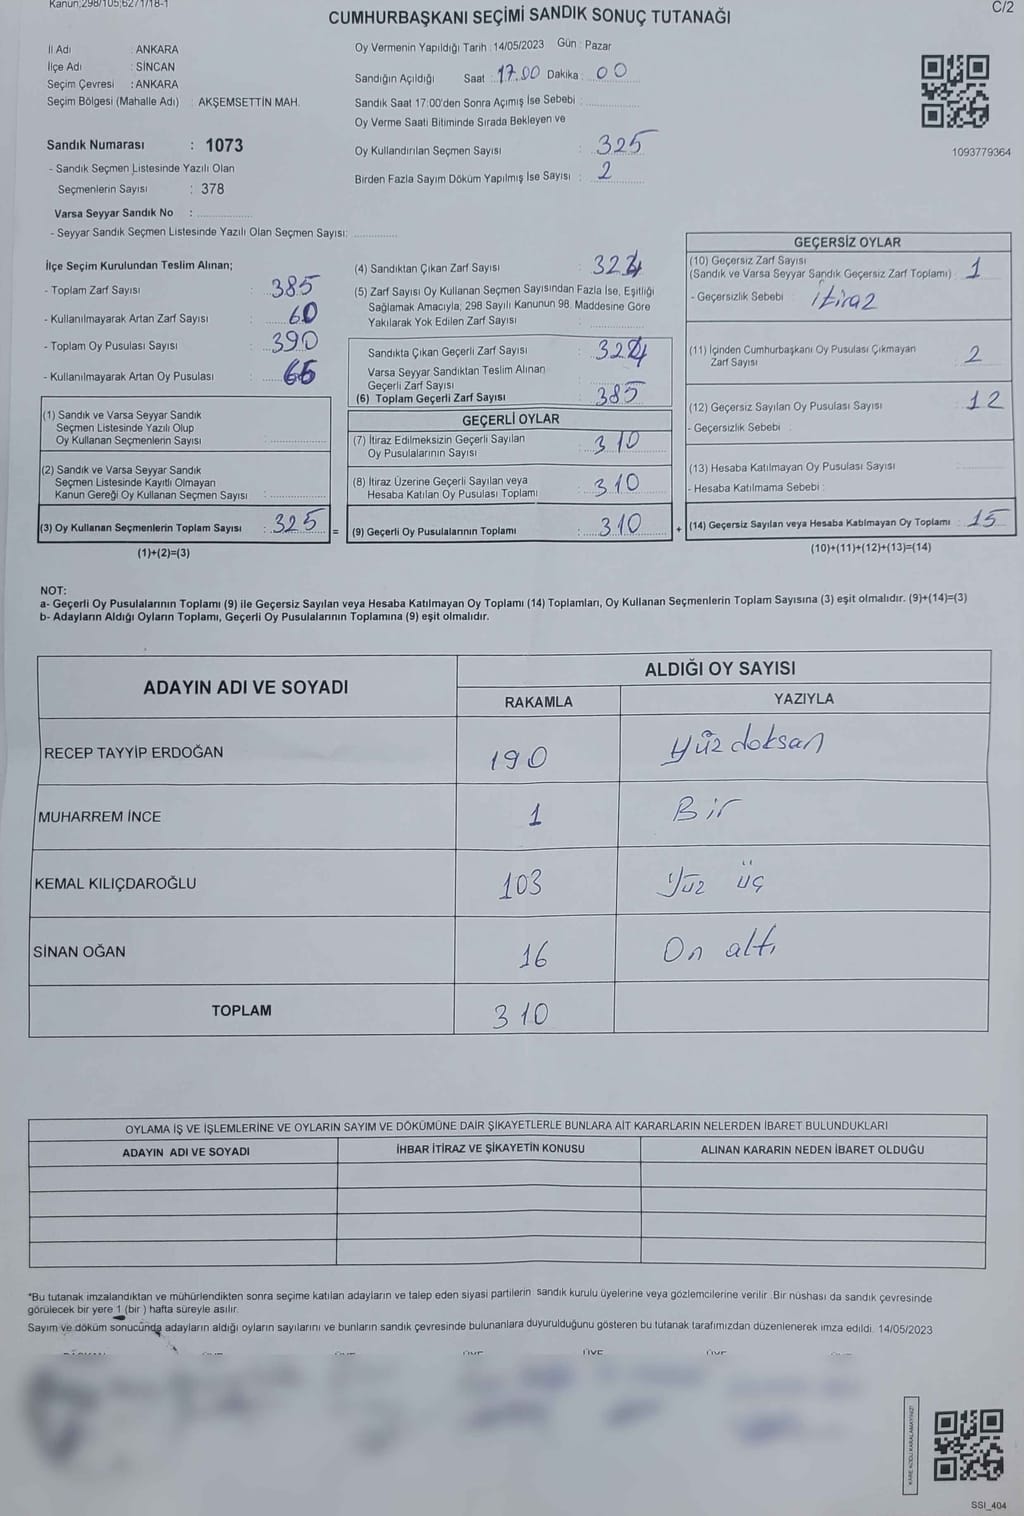 Kanun;298/105;6271/18-1
C/2
CUMHURBAŞKANI SEÇİMİ SANDIK SONUÇ TUTANAĞI
İl Adı : ANKARA
İlçe Adı : SİNCAN
Seçim Çevresi : ANKARA
Seçim Bölgesi (Mahalle Adı) : AKŞEMSETTİN MAH.
Oy Vermenin Yapıldığı Tarih : 14/05/2023 Gün : Pazar
Sandığın Açıldığı Saat : 17.00 Dakika : 00
Sandık Saat 17:00'den Sonra Açımış İse Sebebi :
Oy Verme Saati Bitiminde Sırada Bekleyen ve
Oy Kullandırılan Seçmen Sayısı : 325
Birden Fazla Sayım Döküm Yapılmış İse Sayısı : 2
1093779364
Sandık Numarası : 1073
- Sandık Seçmen Listesinde Yazılı Olan
Seçmenlerin Sayısı : 378
Varsa Seyyar Sandık No :
- Seyyar Sandık Seçmen Listesinde Yazılı Olan Seçmen Sayısı:
İlçe Seçim Kurulundan Teslim Alınan;
- Toplam Zarf Sayısı : 385
- Kullanılmayarak Artan Zarf Sayısı : 60
- Toplam Oy Pusulası Sayısı : 390
- Kullanılmayarak Artan Oy Pusulası : 65
(1) Sandık ve Varsa Seyyar Sandık
Seçmen Listesinde Yazılı Olup
Oy Kullanan Seçmenlerin Sayısı :
(2) Sandık ve Varsa Seyyar Sandık
Seçmen Listesinde Kayıtlı Olmayan
Kanun Gereği Oy Kullanan Seçmen Sayısı :
(3) Oy Kullanan Seçmenlerin Toplam Sayısı : 325 =
(1)+(2)=(3)
(4) Sandıktan Çıkan Zarf Sayısı : 324
(5) Zarf Sayısı Oy Kullanan Seçmen Sayısından Fazla İse, Eşitliği
Sağlamak Amacıyla; 298 Sayılı Kanunun 98. Maddesine Göre
Yakılarak Yok Edilen Zarf Sayısı :
Sandıkta Çıkan Geçerli Zarf Sayısı : 324
Varsa Seyyar Sandıktan Teslim Alınan
Geçerli Zarf Sayısı
(6) Toplam Geçerli Zarf Sayısı : 385
GEÇERLİ OYLAR
(7) İtiraz Edilmeksizin Geçerli Sayılan
Oy Pusulalarının Sayısı : 310
(8) İtiraz Üzerine Geçerli Sayılan veya
Hesaba Katılan Oy Pusulası Toplamı : 310
(9) Geçerli Oy Pusulalarının Toplamı : 310 +
GEÇERSİZ OYLAR
(10) Geçersiz Zarf Sayısı
(Sandık ve Varsa Seyyar Sandık Geçersiz Zarf Toplamı) : 1
- Geçersizlik Sebebi : itiraz
(11) İçinden Cumhurbaşkanı Oy Pusulası Çıkmayan
Zarf Sayısı 2
(12) Geçersiz Sayılan Oy Pusulası Sayısı : 12
- Geçersizlik Sebebi :
(13) Hesaba Katılmayan Oy Pusulası Sayısı :
- Hesaba Katılmama Sebebi :
(14) Geçersiz Sayılan veya Hesaba Katılmayan Oy Toplamı : 15
(10)+(11)+(12)+(13)=(14)
NOT:
a- Geçerli Oy Pusulalarının Toplamı (9) ile Geçersiz Sayılan veya Hesaba Katılmayan Oy Toplamı (14) Toplamları, Oy Kullanan Seçmenlerin Toplam Sayısına (3) eşit olmalıdır. (9)+(14)=(3)
b- Adayların Aldığı Oyların Toplamı, Geçerli Oy Pusulalarının Toplamına (9) eşit olmalıdır.
ADAYIN ADI VE SOYADI
ALDIĞI OY SAYISI
RAKAMLA YAZIYLA
RECEP TAYYİP ERDOĞAN 190 Yüz doksan
MUHARREM İNCE 1 Bir
KEMAL KILIÇDAROĞLU 103 Yüz üç
SİNAN OĞAN 16 On altı
TOPLAM 310
OYLAMA İŞ VE İŞLEMLERİNE VE OYLARIN SAYIM VE DÖKÜMÜNE DAİR ŞİKAYETLERLE BUNLARA AİT KARARLARIN NELERDEN İBARET BULUNDUKLARI
ADAYIN ADI VE SOYADI İHBAR İTİRAZ VE ŞİKAYETİN KONUSU ALINAN KARARIN NEDEN İBARET OLDUĞU
*Bu tutanak imzalandıktan ve mühürlendikten sonra seçime katılan adayların ve talep eden siyasi partilerin sandık kurulu üyelerine veya gözlemcilerine verilir. Bir nüshası da sandık çevresinde
görülecek bir yere 1 (bir ) hafta süreyle asılır.
Sayım ve döküm sonucunda adayların aldığı oyların sayılarını ve bunların sandık çevresinde bulunanlara duyurulduğunu gösteren bu tutanak tarafımızdan düzenlenerek imza edildi. 14/05/2023
KARE KODU KARALAMAYINIZ!
SSI_404